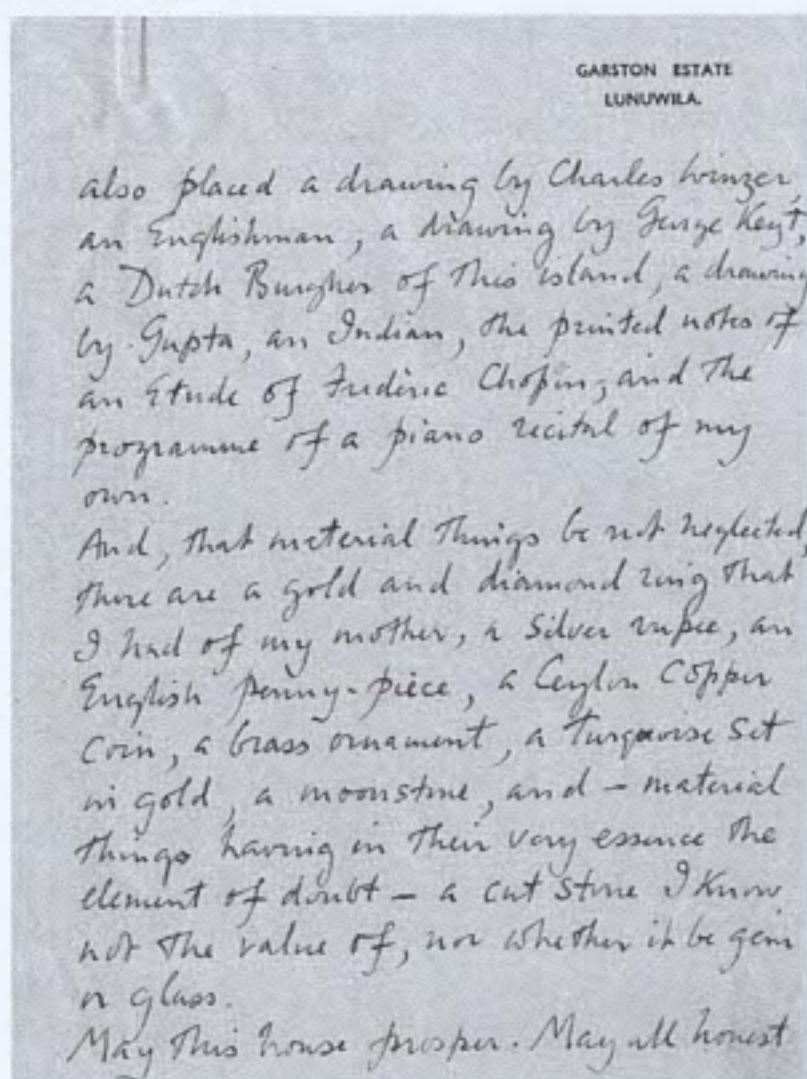 GARSTON ESTATE
LUNUWILA.
also placed a drawing by Charles Winzer,
an Englishman, a drawing by George Keyt,
a Dutch Burgher of this island, a drawing
by Gupta, an Indian, the printed notes of
an Etude of Frédéric Chopin, and the
programme of a piano recital of my
own.
And, that material things be not neglected,
there are a gold and diamond ring that
I had of my mother, a silver rupee, an
English penny-piece, a Ceylon Copper
Coin, a brass ornament, a turquoise set
in gold, a moonstone, and – material
things having in their very essence the
element of doubt – a cut stone I know
not the value of, nor whether it be gem
or glass.
May this house prosper. May all honest